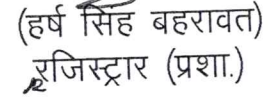 (हर्ष सिंह बहरावत)
रजिस्ट्रार (प्रशा.)